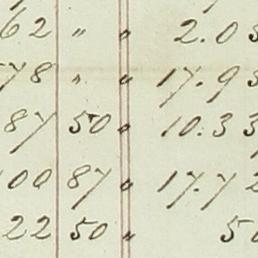 62 " " 2.0
78 " " 17.9
87 50 " 10.33
00 87 " 17.7
22 50 " 50